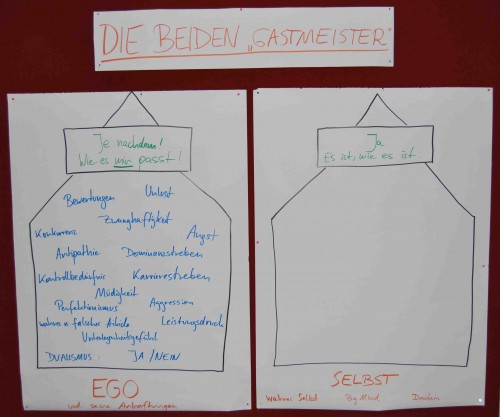 DIE BEIDEN „GASTMEISTER"
Je nachdem!
Wie es mir passt!
Bewertungen Unlust
Zwanghaftigkeit
Konkurrenz Angst
Antipathie Dominanzstreben
Kontrollbedürfnis Karrierestreben
Müdigkeit
Perfektionismus Aggression
wahre u. falsche Leistungsdruck
Unterlegenheitsgefühl
DUALISMUS: JA/NEIN
EGO
und seine Anhaftungen
Ja
Es ist, wie es ist
SELBST
Wahres Selbst Big Mind